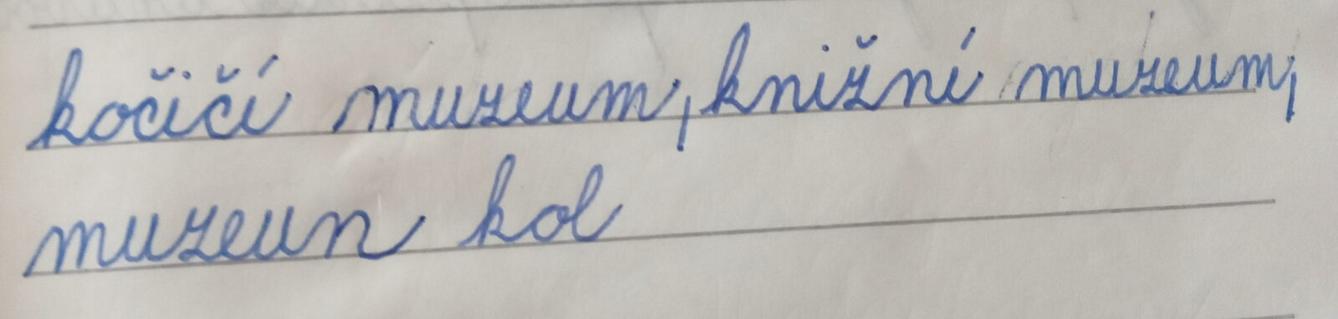 kočičí muzeum, knižní muzeum,
muzeun kol